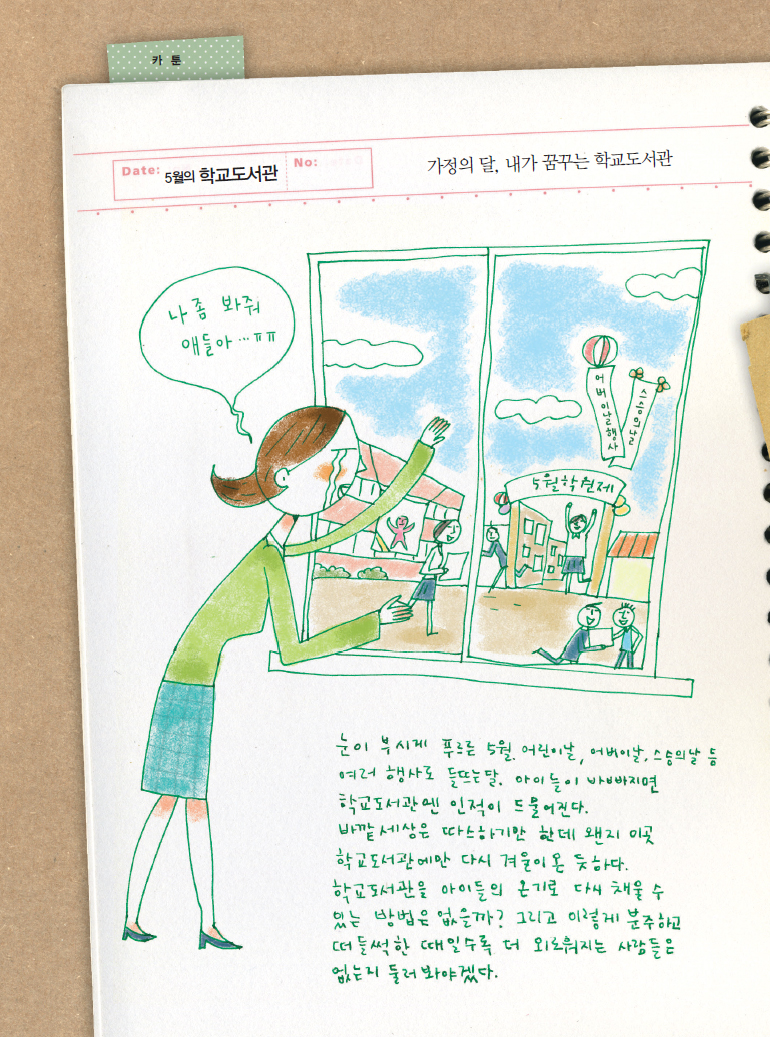 카 툰
Date: 5월의 학교도서관 No:
가정의 달, 내가 꿈꾸는 학교도서관
나 좀 봐줘
얘들아…ㅠㅠ
어버이날행사
스승의날
5월학원제
눈이 부시게 푸르른 5월. 어린이날, 어버이날, 스승의날 등
여러 행사로 들뜨는 달. 아이들이 바빠지면
학교도서관엔 인적이 드물어진다.
바깥세상은 따스하기만 한데 왠지 이곳
학교도서관에만 다시 겨울이 온 듯하다.
학교도서관을 아이들의 온기로 다시 채울 수
있는 방법은 없을까? 그리고 이렇게 분주하고
떠들썩한 때일수록 더 외로워지는 사람들은
없는지 둘러봐야겠다.